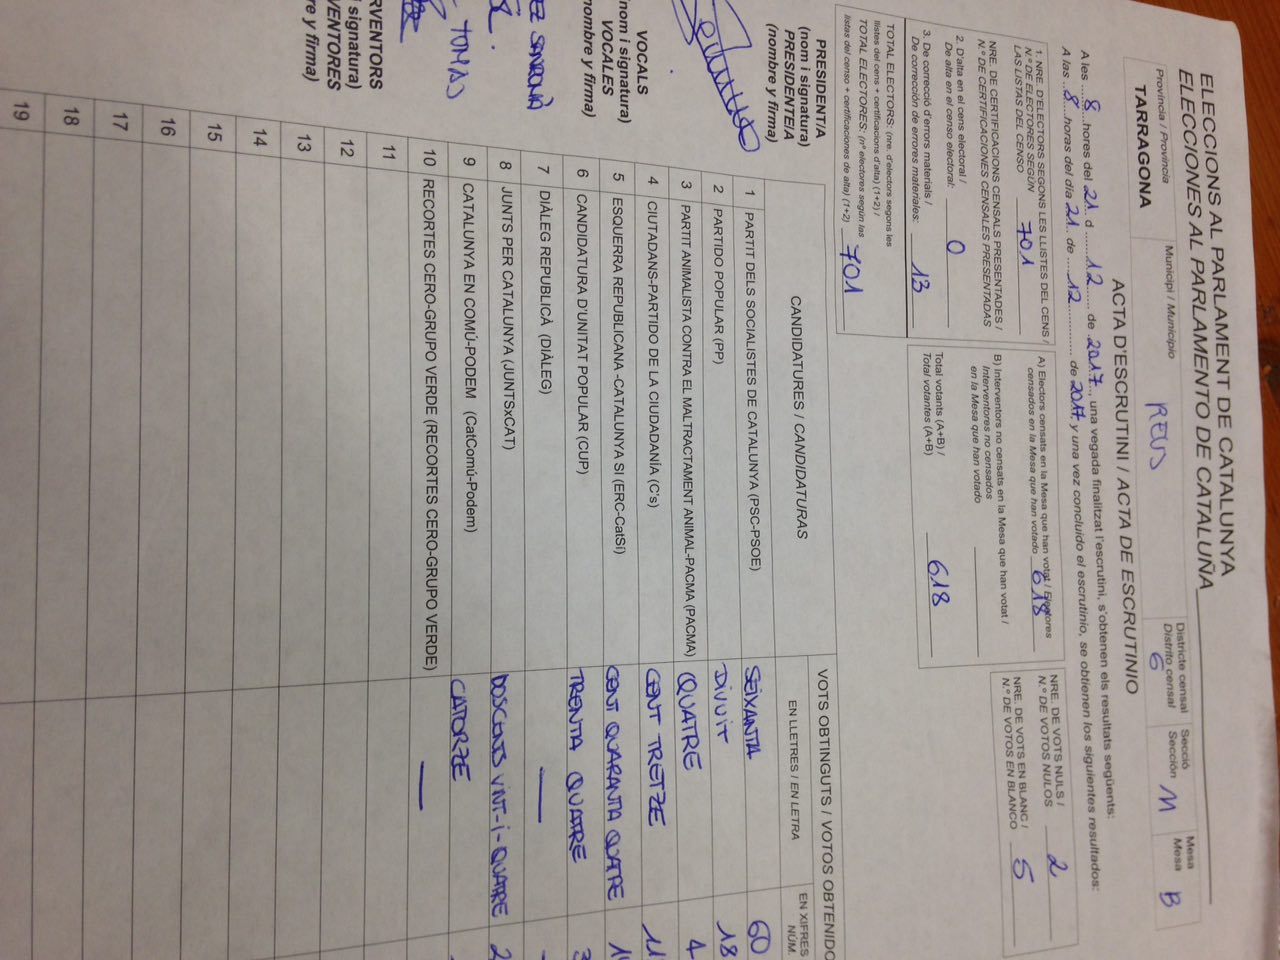 ELECCIONS AL PARLAMENT DE CATALUNYA
ELECCIONES AL PARLAMENTO DE CATALUÑA
Província / Provincia
TARRAGONA
Municipi / Municipio
REUS
Districte censal
Distrito censal
6
Secció
Sección
M
Mesa
Mesa
B
ACTA D'ESCRUTINI / ACTA DE ESCRUTINIO
A les 8 hores del 21 d 12 de 2017, una vegada finalitzat l'escrutini, s'obtenen els resultats següents:
A las 8 horas del día 21 de 12 de 2017 y una vez concluido el escrutinio, se obtienen los siguientes resultados:
1. NRE. D'ELECTORS SEGONS LES LLISTES DEL CENS /
N.º DE ELECTORES SEGÚN
LAS LISTAS DEL CENSO 701
NRE. DE CERTIFICACIONS CENSALS PRESENTADES /
N.º DE CERTIFICACIONES CENSALES PRESENTADAS
2. D'alta en el cens electoral /
De alta en el censo electoral: 0
3. De correcció d'errors materials /
De corrección de errores materiales: 13
TOTAL ELECTORS: (nre. d'electors segons les
llistes del cens + certificacions d'alta) (1+2) /
TOTAL ELECTORES: (nº electores según las
listas del censo + certificaciones de alta) (1+2) 701
A) Electors censats en la Mesa que han votat / Electores
censados en la Mesa que han votado 618
B) Interventors no censats en la Mesa que han votat /
Interventores no censados
en la Mesa que han votado
Total votants (A+B) /
Total votantes (A+B) 618
NRE. DE VOTS NULS /
N.º DE VOTOS NULOS 2
NRE. DE VOTS EN BLANC /
N.º DE VOTOS EN BLANCO 5
CANDIDATURES / CANDIDATURAS
VOTS OBTINGUTS / VOTOS OBTENIDO
EN LLETRES / EN LETRA
EN XIFRES
NÚM.
1 PARTIT DELS SOCIALISTES DE CATALUNYA (PSC-PSOE) SEIXANTA 60
2 PARTIDO POPULAR (PP) DIVUIT 18
3 PARTIT ANIMALISTA CONTRA EL MALTRACTAMENT ANIMAL-PACMA (PACMA) QUATRE 4
4 CIUTADANS-PARTIDO DE LA CIUDADANÍA (C's) CENT TRETZE 11
5 ESQUERRA REPUBLICANA -CATALUNYA SÍ (ERC-CatSí) CENT QUARANTA QUATRE 1
6 CANDIDATURA D'UNITAT POPULAR (CUP) TRENTA QUATRE 3
7 DIÀLEG REPUBLICÀ (DIÀLEG) —
8 JUNTS PER CATALUNYA (JUNTSxCAT) DOSCENTS VINT-I-QUATRE 2
9 CATALUNYA EN COMÚ-PODEM (CatComú-Podem) CATORZE
10 RECORTES CERO-GRUPO VERDE (RECORTES CERO-GRUPO VERDE) —
11
12
13
14
15
16
17
18
19
PRESIDENT/A
(nom i signatura)
PRESIDENTE/A
(nombre y firma)
VOCALS
(nom i signatura)
VOCALES
(nombre y firma)
RVENTORS
i signatura)
VENTORES
re y firma)
TOMAS